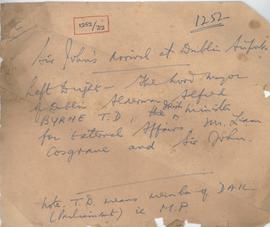 1252/22
1252
Sir John's arrival at Dublin Airport.
Left to right - The Lord Mayor
of Dublin Alderman Alfred
BYRNE T.D., the Irish Minister
for External Affairs, Mr. Liam
Cosgrave and Sir John.
Note. T.D. means member of DAIL
(Parliament) ie M.P